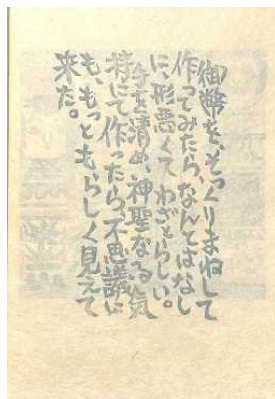 御幣を、そっくりまねして
作ってみたら、なんとはなし
に、形悪くてわざとらしい。
身を清め、神聖なる気
持にて、作ったら、不思議に
も、もっともらしく見えて
来た。